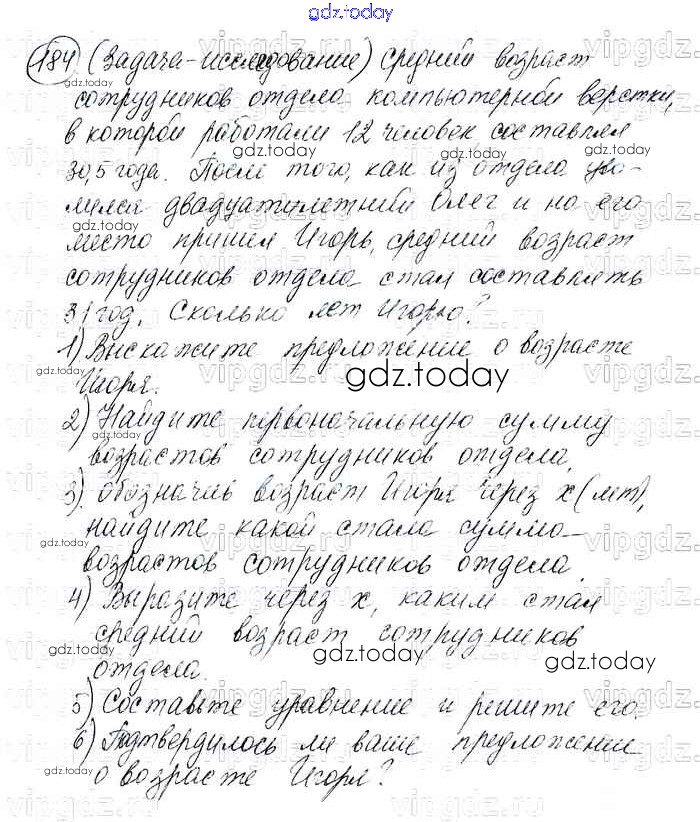 gdz.today
184 (Задача-исследование) Средний возраст
сотрудников отдела компьютерной верстки,
в которой работали 12 человек, составлял
gdz.today
30,5 года. После того, как из отдела уво-
лился двадцатилетний Олег и на его
gdz.today
место пришел Игорь, средний возраст
gdz.today
сотрудников отдела стал составлять
31 год. Сколько лет Игорю?
1) Выскажите предложение о возрасте
Игоря.
gdz.today
gdz.today
2) Найдите первоначальную сумму
gdz.today
возрастов сотрудников отдела.
gdz.today
3) обозначив возраст Игоря через x (лет),
найдите какой стала сумма
gdz.today
возрастов сотрудников отдела.
4) Выразите через x, каким стал
средний возраст сотрудников
gdz.today
gdz.today
отдела.
5) Составьте уравнение и решите его.
6) Подтвердилось ли ваше предложение
gdz.today
о возрасте Игоря?
vipgdz.ru